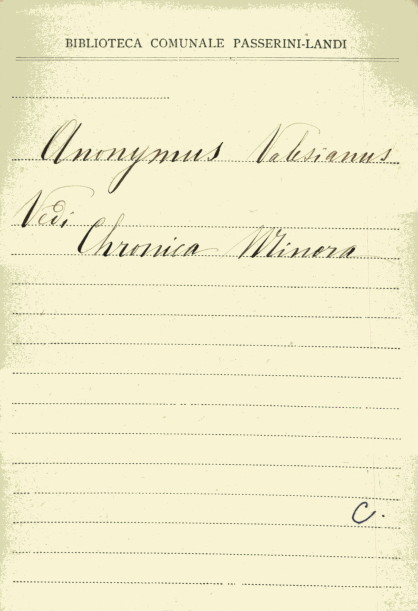 BIBLIOTECA COMUNALE PASSERINI-LANDI
Anonymus Valesianus
Vedi
Chronica Minora
C.